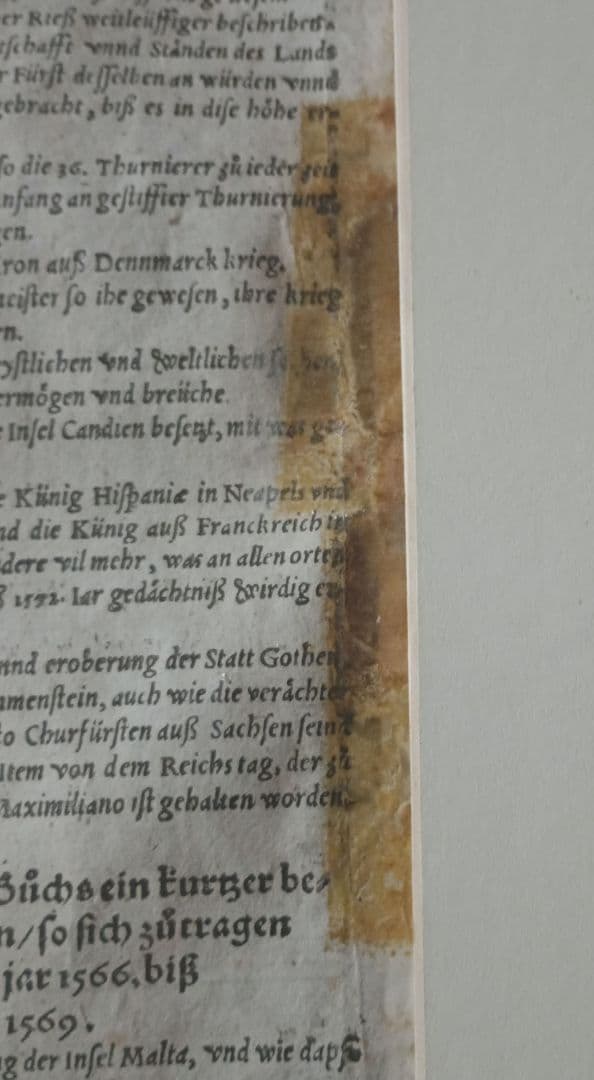 er Rieß weitleüffiger beschriben
tschafft vnnd Stånden des Lands
r Fürst desselben an würden vnnd
gebracht, biß es in dise hôhe er-
so die 36. Thurnierer zů ieder zeit
nfang an gestiffter Thurnierung
en.
ron auß Dennmarck krieg,
meister so ihe gewesen, ihre krieg
n.
ystlichen vnd Weltlichen
ermôgen vnd breüche.
Insel Candien besetzt, mit was
Künig Hispaniæ in Neapels vnd
nd die Künig auß Franckreich in
dere vil mehr, was an allen orten
1592. Iar gedåchtniß wirdig
nnd eroberung der Statt Gothen
mmenstein, auch wie die veråchter
to Churfürsten auß Sachsen seind
Item von dem Reichstag, der zů
Maximiliano ist gehalten worden.
Bůchs ein kurtzer be-
n/so sich zůtragen
jar 1566. biß
1569.
g der Insel Malta, vnd wie dapff